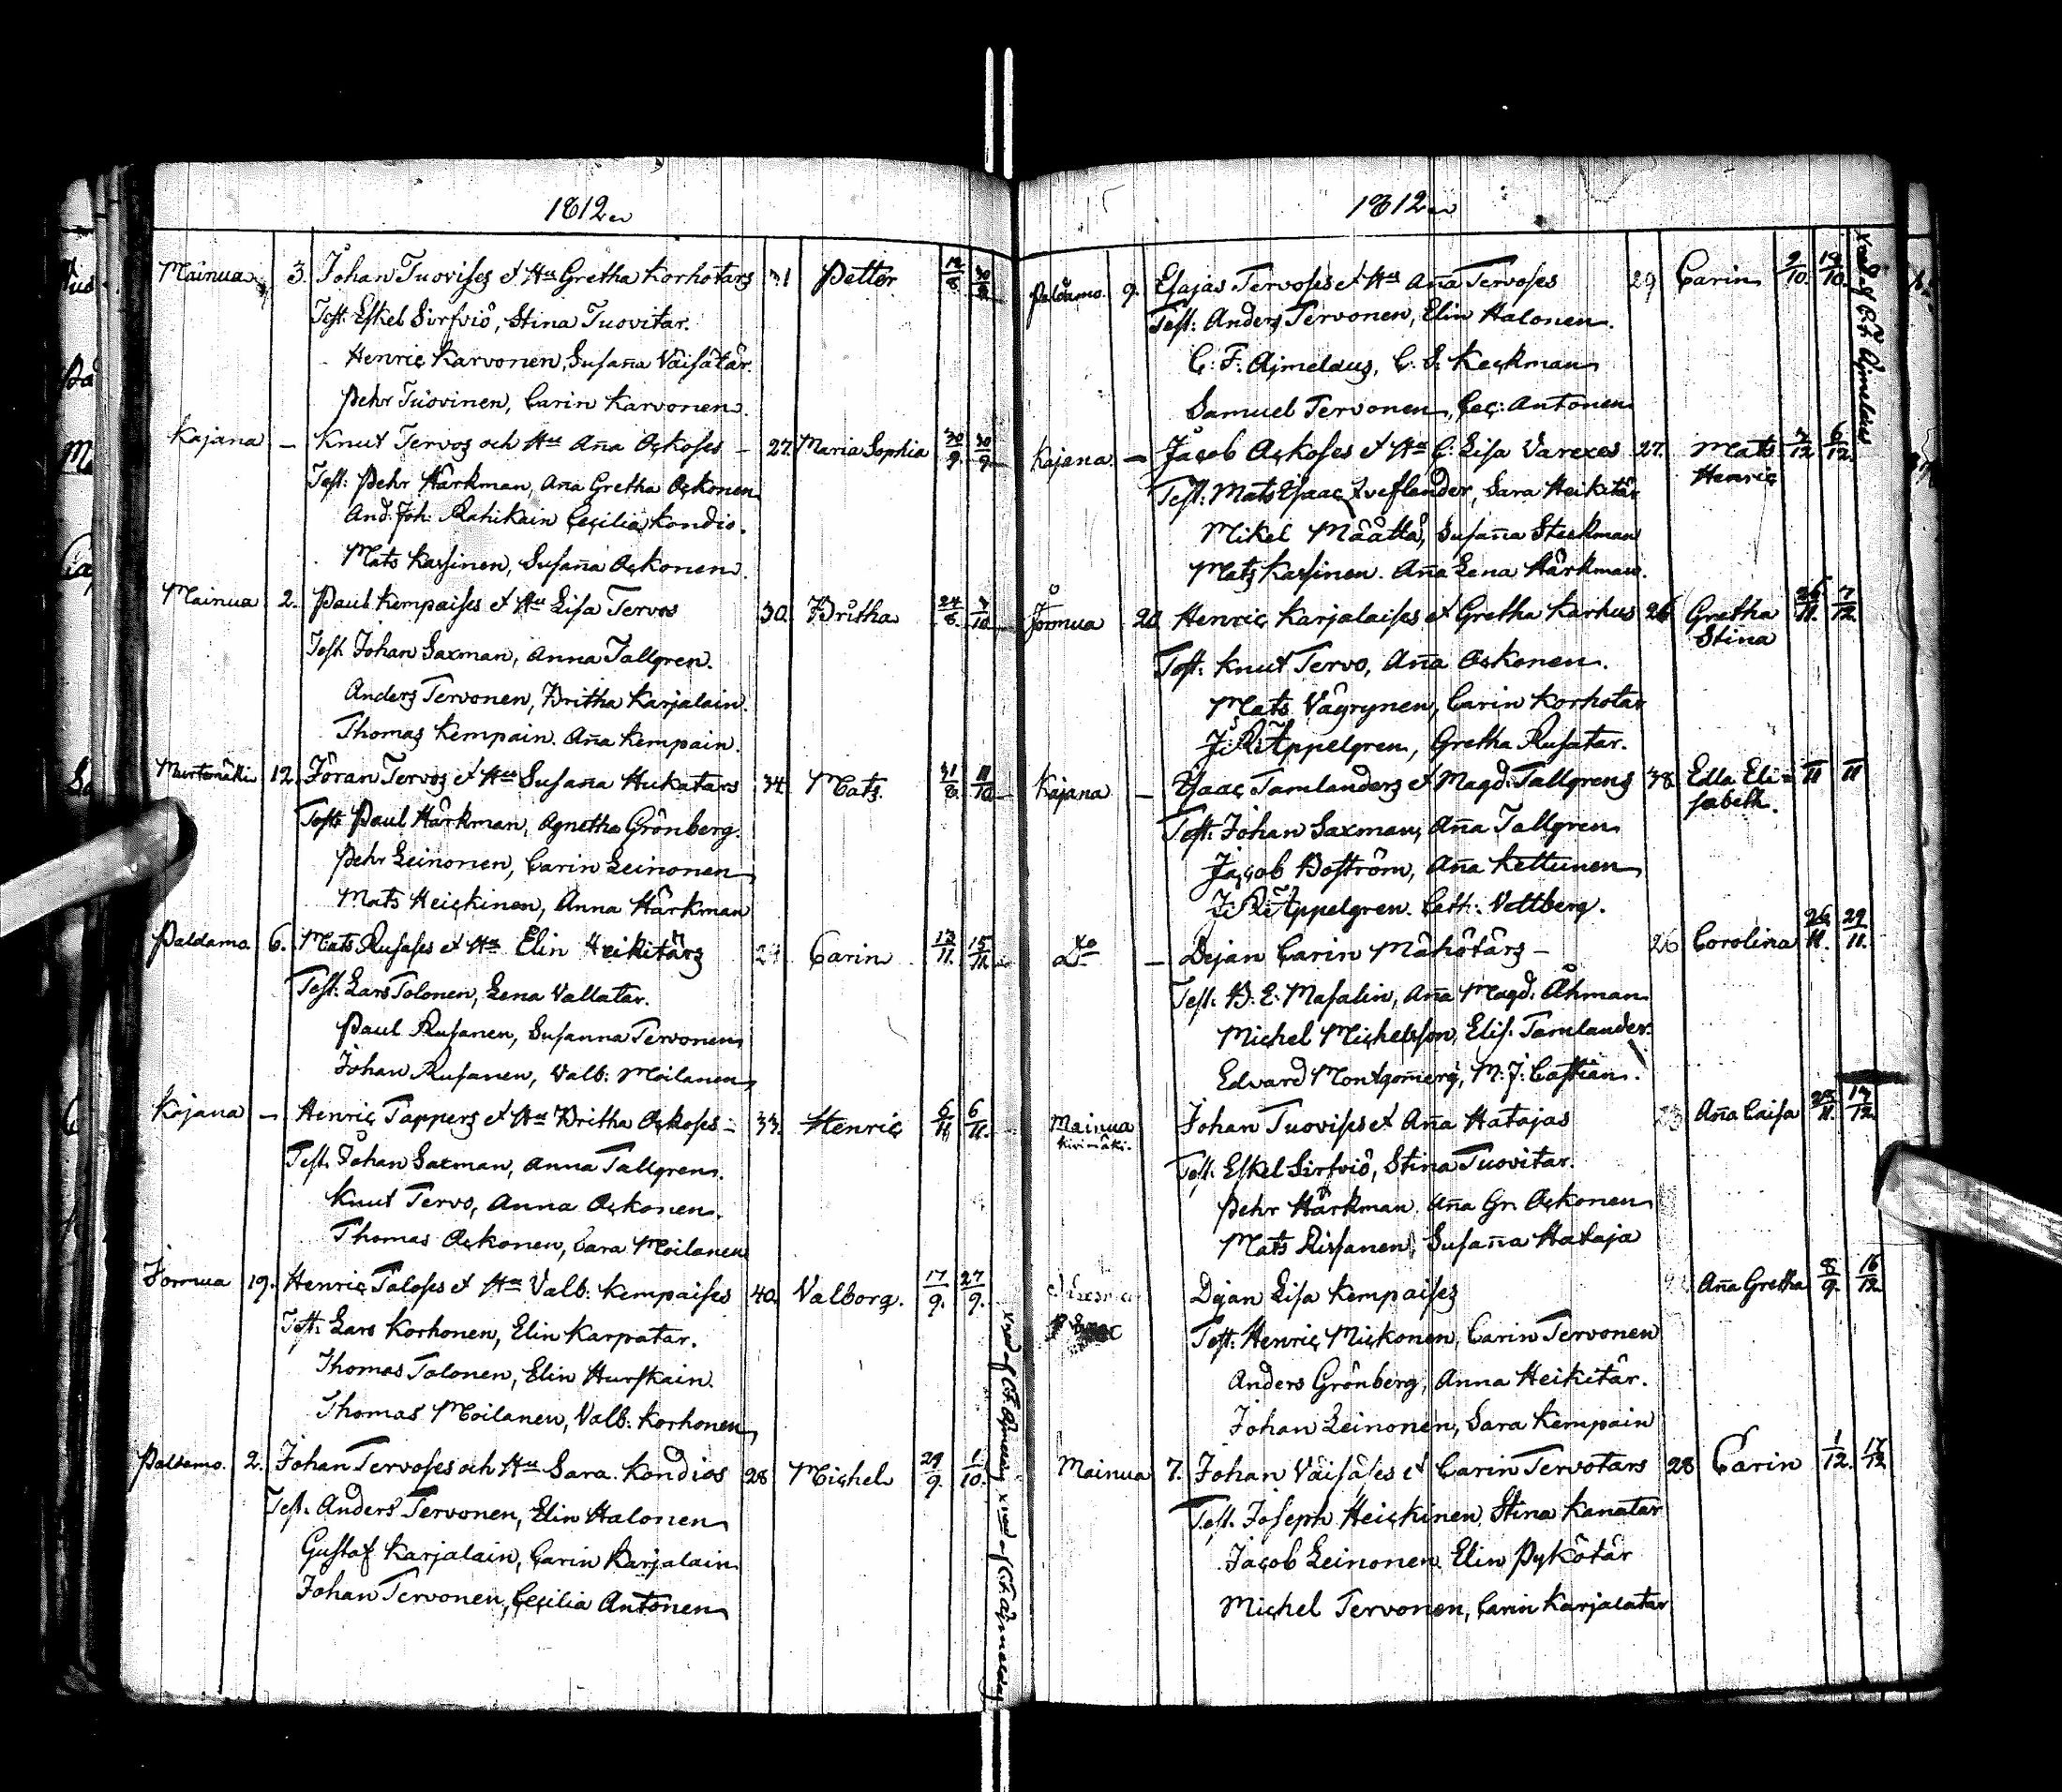 1812
Mainua 3. Johan Tuovises et Hu Gretha Korhotars 31 Petter 12/8 30/8
Test. Eskel Sirfviö, Stina Tuovitar.
Henric Karvonen, Susaña Väisätär.
Pehr Tuovinen, Carin Karvonen.
Kajana – Knut Tervos och Hu Aña Ockoses – 27. Maria Sophia 30/9. 30/9
Test: Pehr Härkman, Aña Gretha Ockonen
And. Joh. Rahikain Cecilia Kondio.
Mats Kassinen, Susaña Ockonen.
Mainua 2. Paul Kempaises et Hu Lisa Tervos 30. Britha 24/8. 4/10
Test. Johan Saxman, Anna Tallgren.
Anders Tervonen, Britha Karjalain.
Thomas Kempain. Aña Kempain.
Murtomäki 12. Jöran Tervos et Hu Susaña Hukatars 34. Mats. 31/8. 11/10
Test: Paul Härkman, Agnetha Grönberg.
Pehr Leinonen, Carin Leinonen
Mats Heickinen, Anna Härkman
Paldamo. 6. Mats Rusases et Hu Elin Heikitärs Carin 13/11. 15/11.
Test: Lars Tolonen, Lena Vallatar.
Paul Rusanen, Susanna Tervonen
Johan Rusanen, Valb: Moilanen
Kajana – Henric Tappers et Hu Britha Ockoses – 33. Henric 6/11 6/11.
Test. Johan Saxman, Anna Tallgren.
Knut Tervo, Anna Ockonen.
Thomas Ockonen, Sara Moilanen
Jormua 19. Henric Taloses et Hu Valb: Kempaises 40. Valborg. 17/9. 27/9.
Test: Lars Korhonen, Elin Karpatar.
Thomas Talonen, Elin Hurskain.
Thomas Moilanen, Valb: Korhonen
Paldamo. 2. Johan Tervoses och Hu Sara Kondios 28 Michel 29/9. 1/10.
Test. Anders Tervonen, Elin Halonen
Gustaf Karjalain, Carin Karjalain
Johan Tervonen, Cecilia Antonen
1812
Paldamo. 9. Esajas Tervoses et Hu Aña Tervoses 29 Carin 9/10. 19/10.
Test: Anders Tervonen, Elin Halonen.
C: F: Ajmelaus, C. S. Keckman
Samuel Tervonen, Cec: Antonen
Kajana. – Jacob Ockoses et Hu C: Lisa Varexes 27. Mats Henric 4/12 6/12.
Test: Mats Isaac Tveflander, Sara Heikitär
Mikel Määttä, Susaña Steckman
Mats Kassinen. Aña Lena Härkman.
Jormua 20. Henric Karjalaises et Gretha Karhus 26 Gretha Stina 26/11. 7/12.
Test: Knut Tervo, Aña Ockonen.
Mats Väyrynen, Carin Korhotar
J: R: Appelgren, Gretha Rusatar.
Kajana – Isaac Tamlanders et Magd: Tallgrens 38. Edla Elisabeth.
Test: Johan Saxman, Aña Tallgren
Jacob Boström, Aña Kettunen
J: R: Appelgren. Cath: Vettberg.
Do – Dejan Carin Mähötärs – 26 Corolina 26/11. 29/11.
Test. B: E: Masalin, Aña Magd. Åhman
Michel Michelsson, Elis. Tamlander.
Edvard Montgomerÿ, M: J: Casträn.
Mainua Kivimäki. Johan Tuovises et Aña Hatajas 23 Aña Caisa 23/11. 14/12.
Test: Eskel Sirfviö, Stina Tuovitar.
Pehr Härkman. Aña Gr. Ockonen
Mats Rissanen, Susaña Hataja
Dejan Lisa Kempaises Aña Gretha 8/9. 16/12.
Test: Henric Mickonen, Carin Tervonen
Anders Grönberg, Anna Heikitär.
Johan Leinonen, Sara Kempain
Mainua 7. Johan Väisäses et Carin Tervotars 28 Carin 1/12. 17/12
Test. Joseph Heickinen, Stina Kanatar
Jacob Leinonen Elin Pykötär
Michel Tervonen, Carin Karjalatar